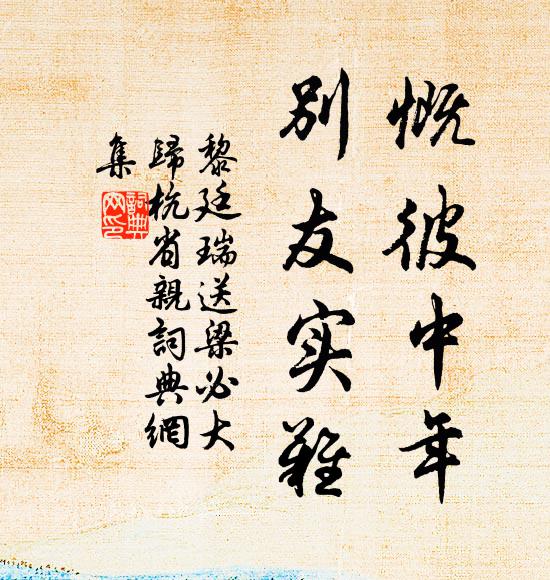 慨彼中年
别友实难
黎廷瑞送梁必大
歸杭省親詞典網
集
詞典網印